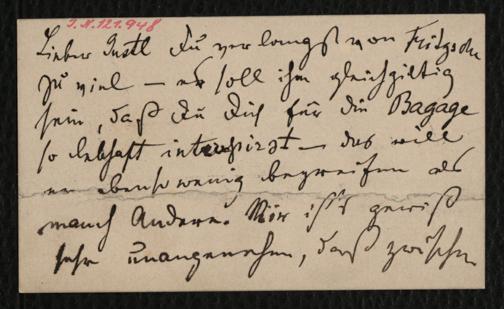 I.N. 121.948
Lieber Gustl Du verlangst von Fritzsche
zu viel – es soll ihm gleichgiltig
sein, daß Du Dich für die Bagage
so lebhaft interessirst – das will
er ebenso wenig begreifen als
manch Andere. Mir ist's gewiß
sehr unangenehm, daß zwischen